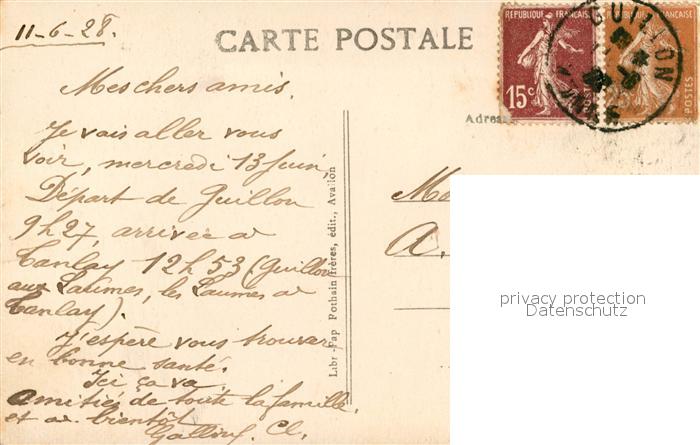 11-6-28.
CARTE POSTALE
REPUBLIQUE FRANÇAISE
15c
POSTES
GUILLON
Adresse
Mes chers amis,
Je vais aller vous
voir, mercredi 13 Juin,
Départ de Guillon
9h27, arrivée a
Tanlay 12h53 (Guillon
aux Laumes, les Laumes a
Tanlay).
J'espère vous trouver
en bonne santé.
Ici ça va
Amitiés de toute la famille
et a bientôt
Cl.
Libr.-Pap Pothain frères, édit., Avallon
A.
privacy protection
Datenschutz